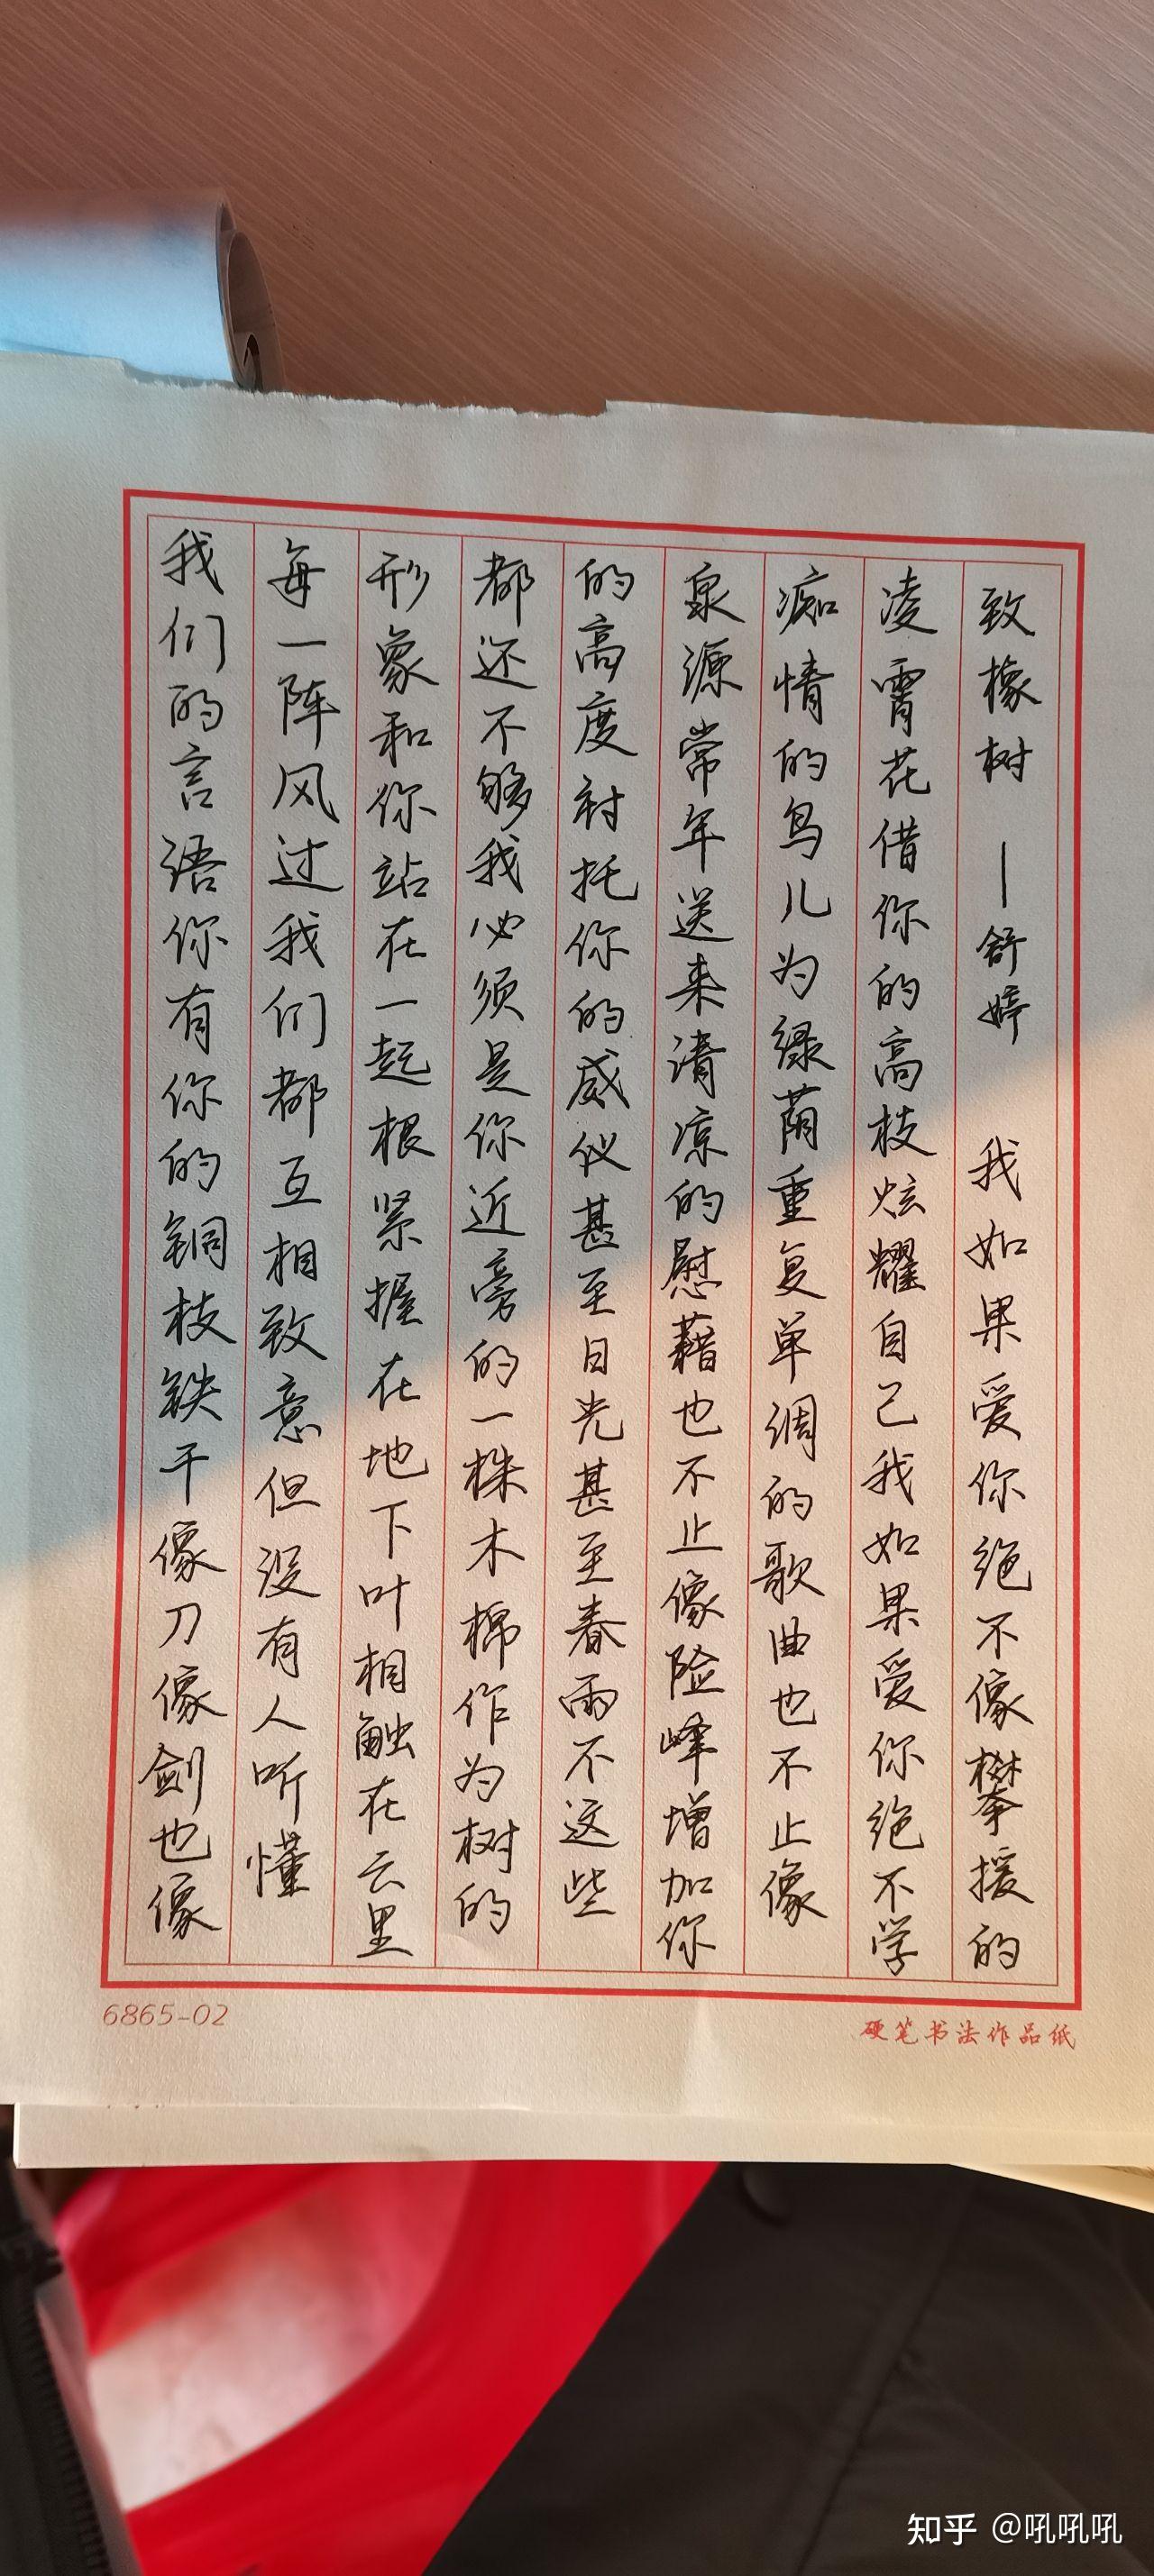 致橡树 —舒婷 我如果爱你绝不像攀援的
凌霄花借你的高枝炫耀自己我如果爱你绝不学
痴情的鸟儿为绿荫重复单调的歌曲也不止像
泉源常年送来清凉的慰藉也不止像险峰增加你
的高度衬托你的威仪甚至日光甚至春雨不这些
都还不够我必须是你近旁的一株木棉作为树的
形象和你站在一起根紧握在地下叶相触在云里
每一阵风过我们都互相致意但没有人听懂
我们的言语你有你的铜枝铁干像刀像剑也像
6865-02
硬笔书法作品纸
知乎 @吼吼吼